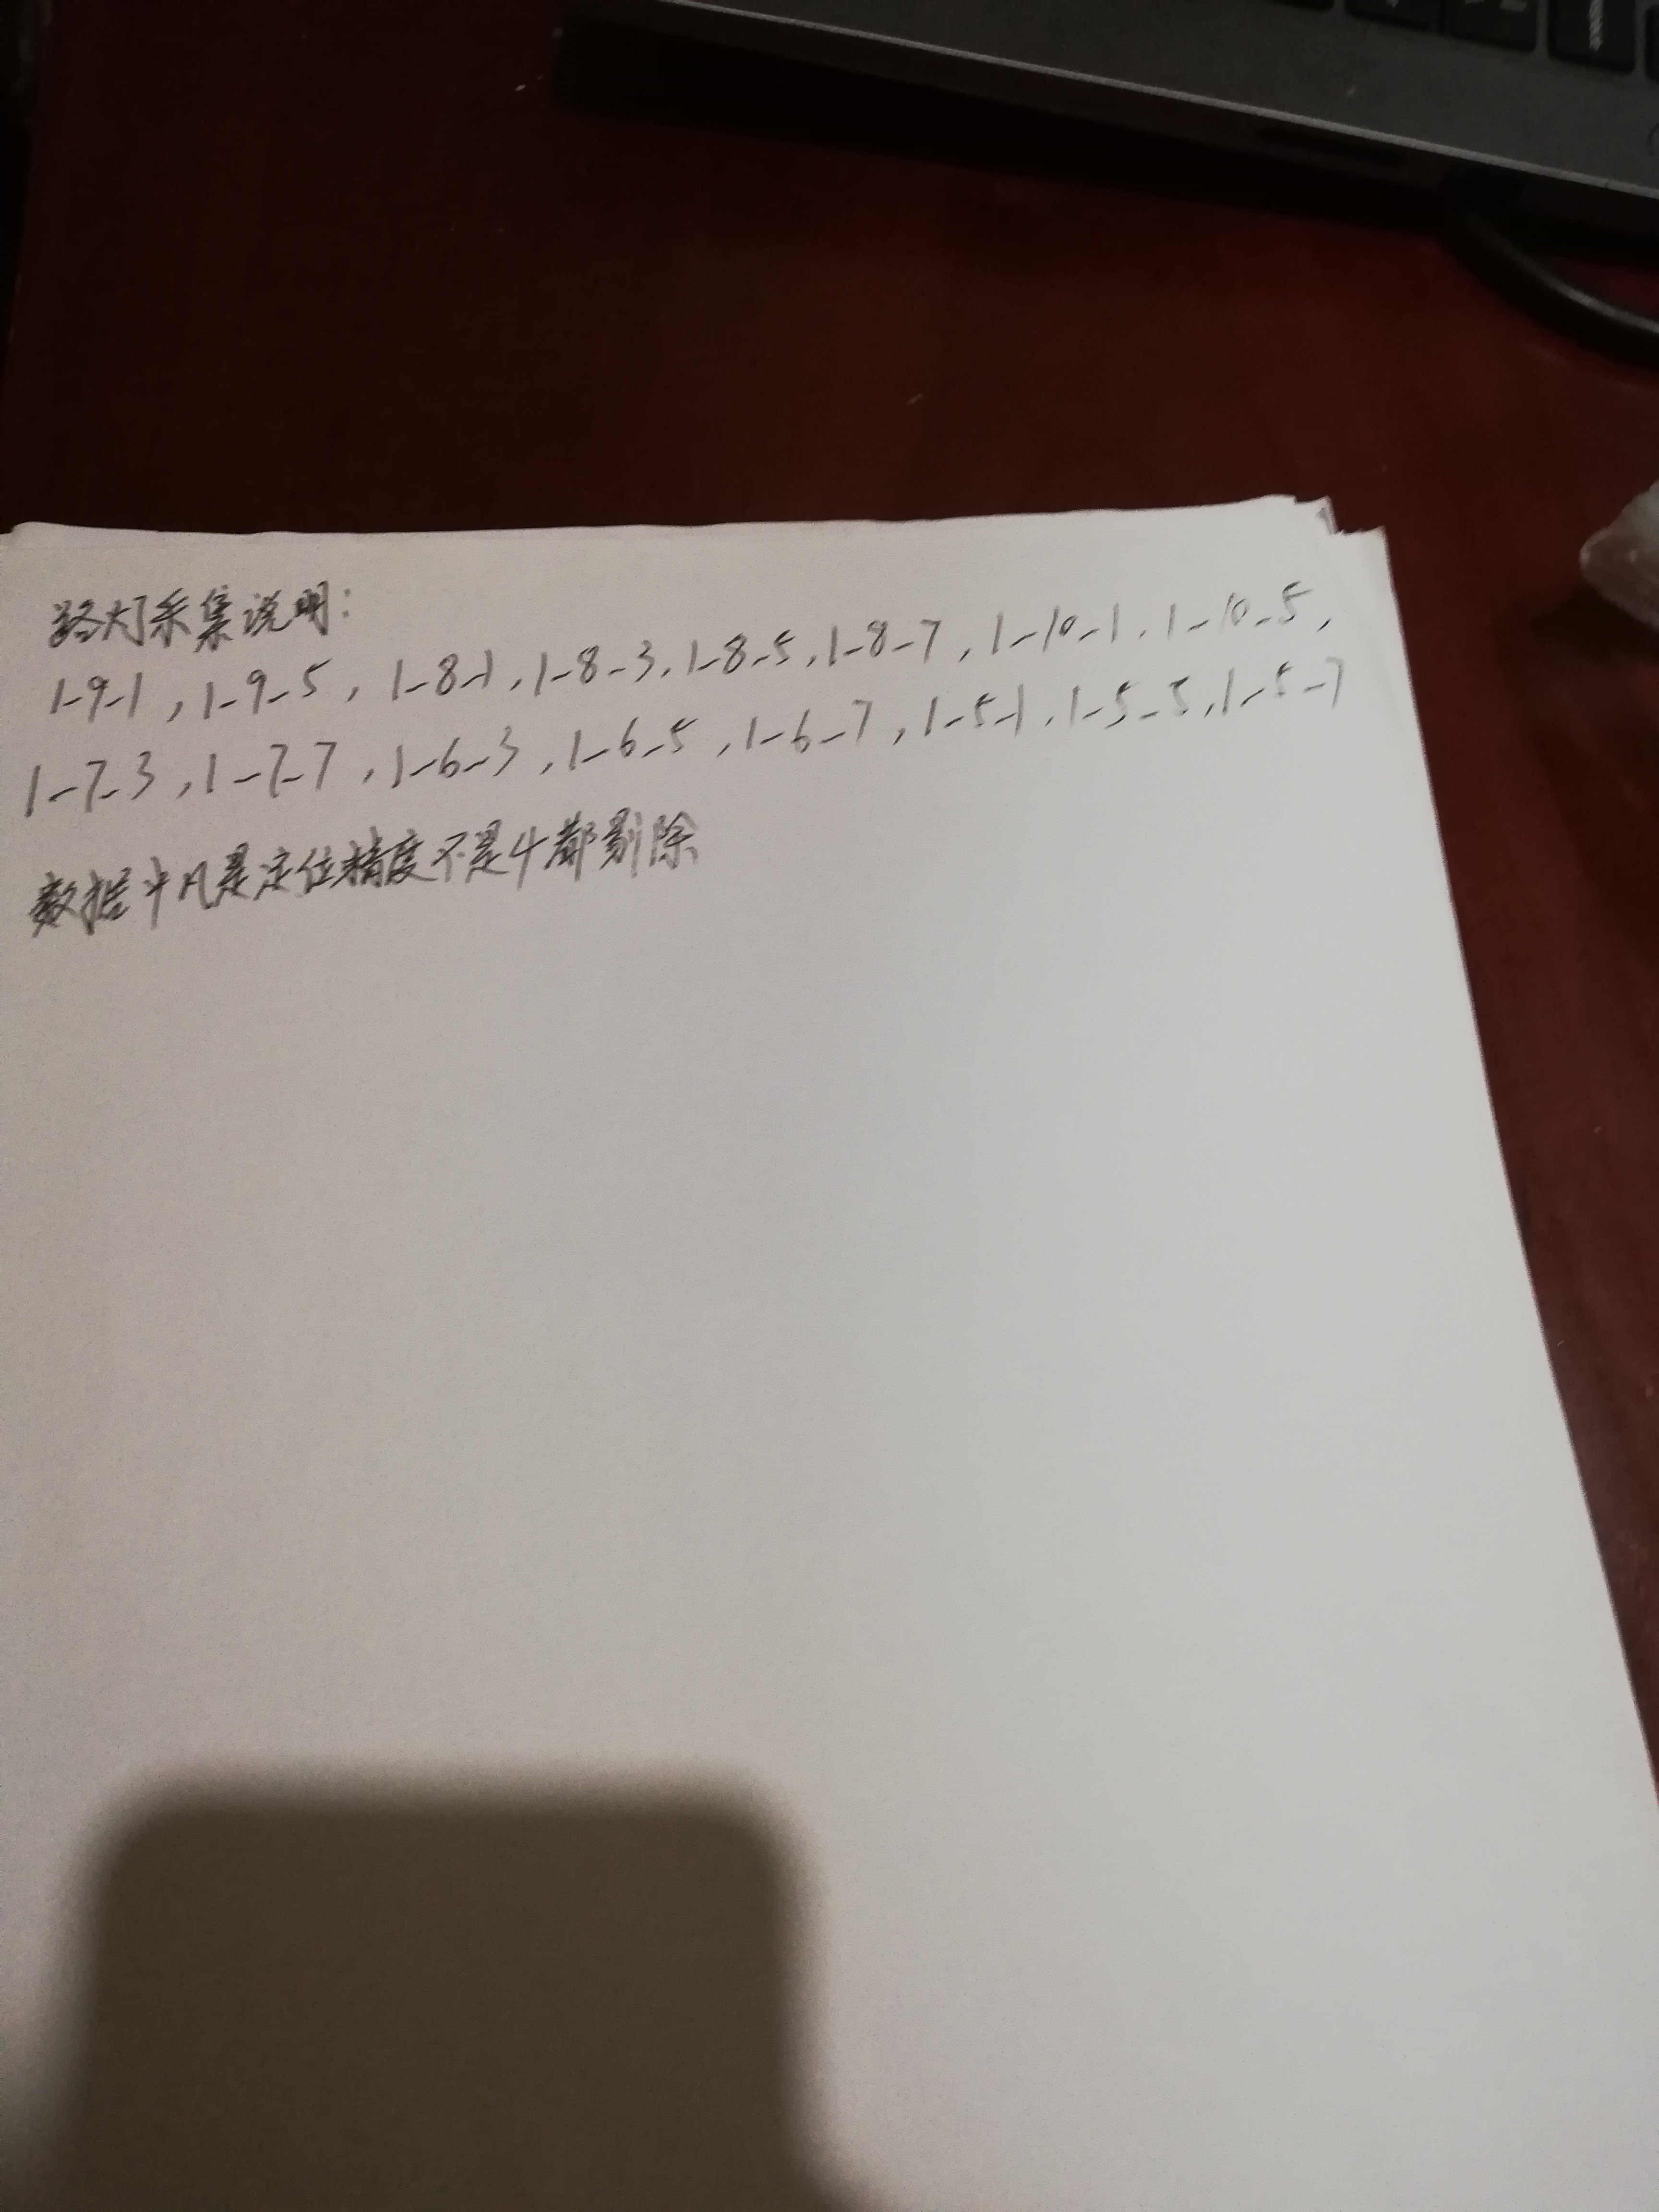 路灯采集说明:
1-9-1,1-9-5,1-8-1,1-8-3,1-8-5,1-8-7,1-10-1,1-10-5,
1-7-3,1-7-7,1-6-3,1-6-5,1-6-7,1-5-1,1-5-5,1-5-7
数据中凡是定位精度不是4都剔除